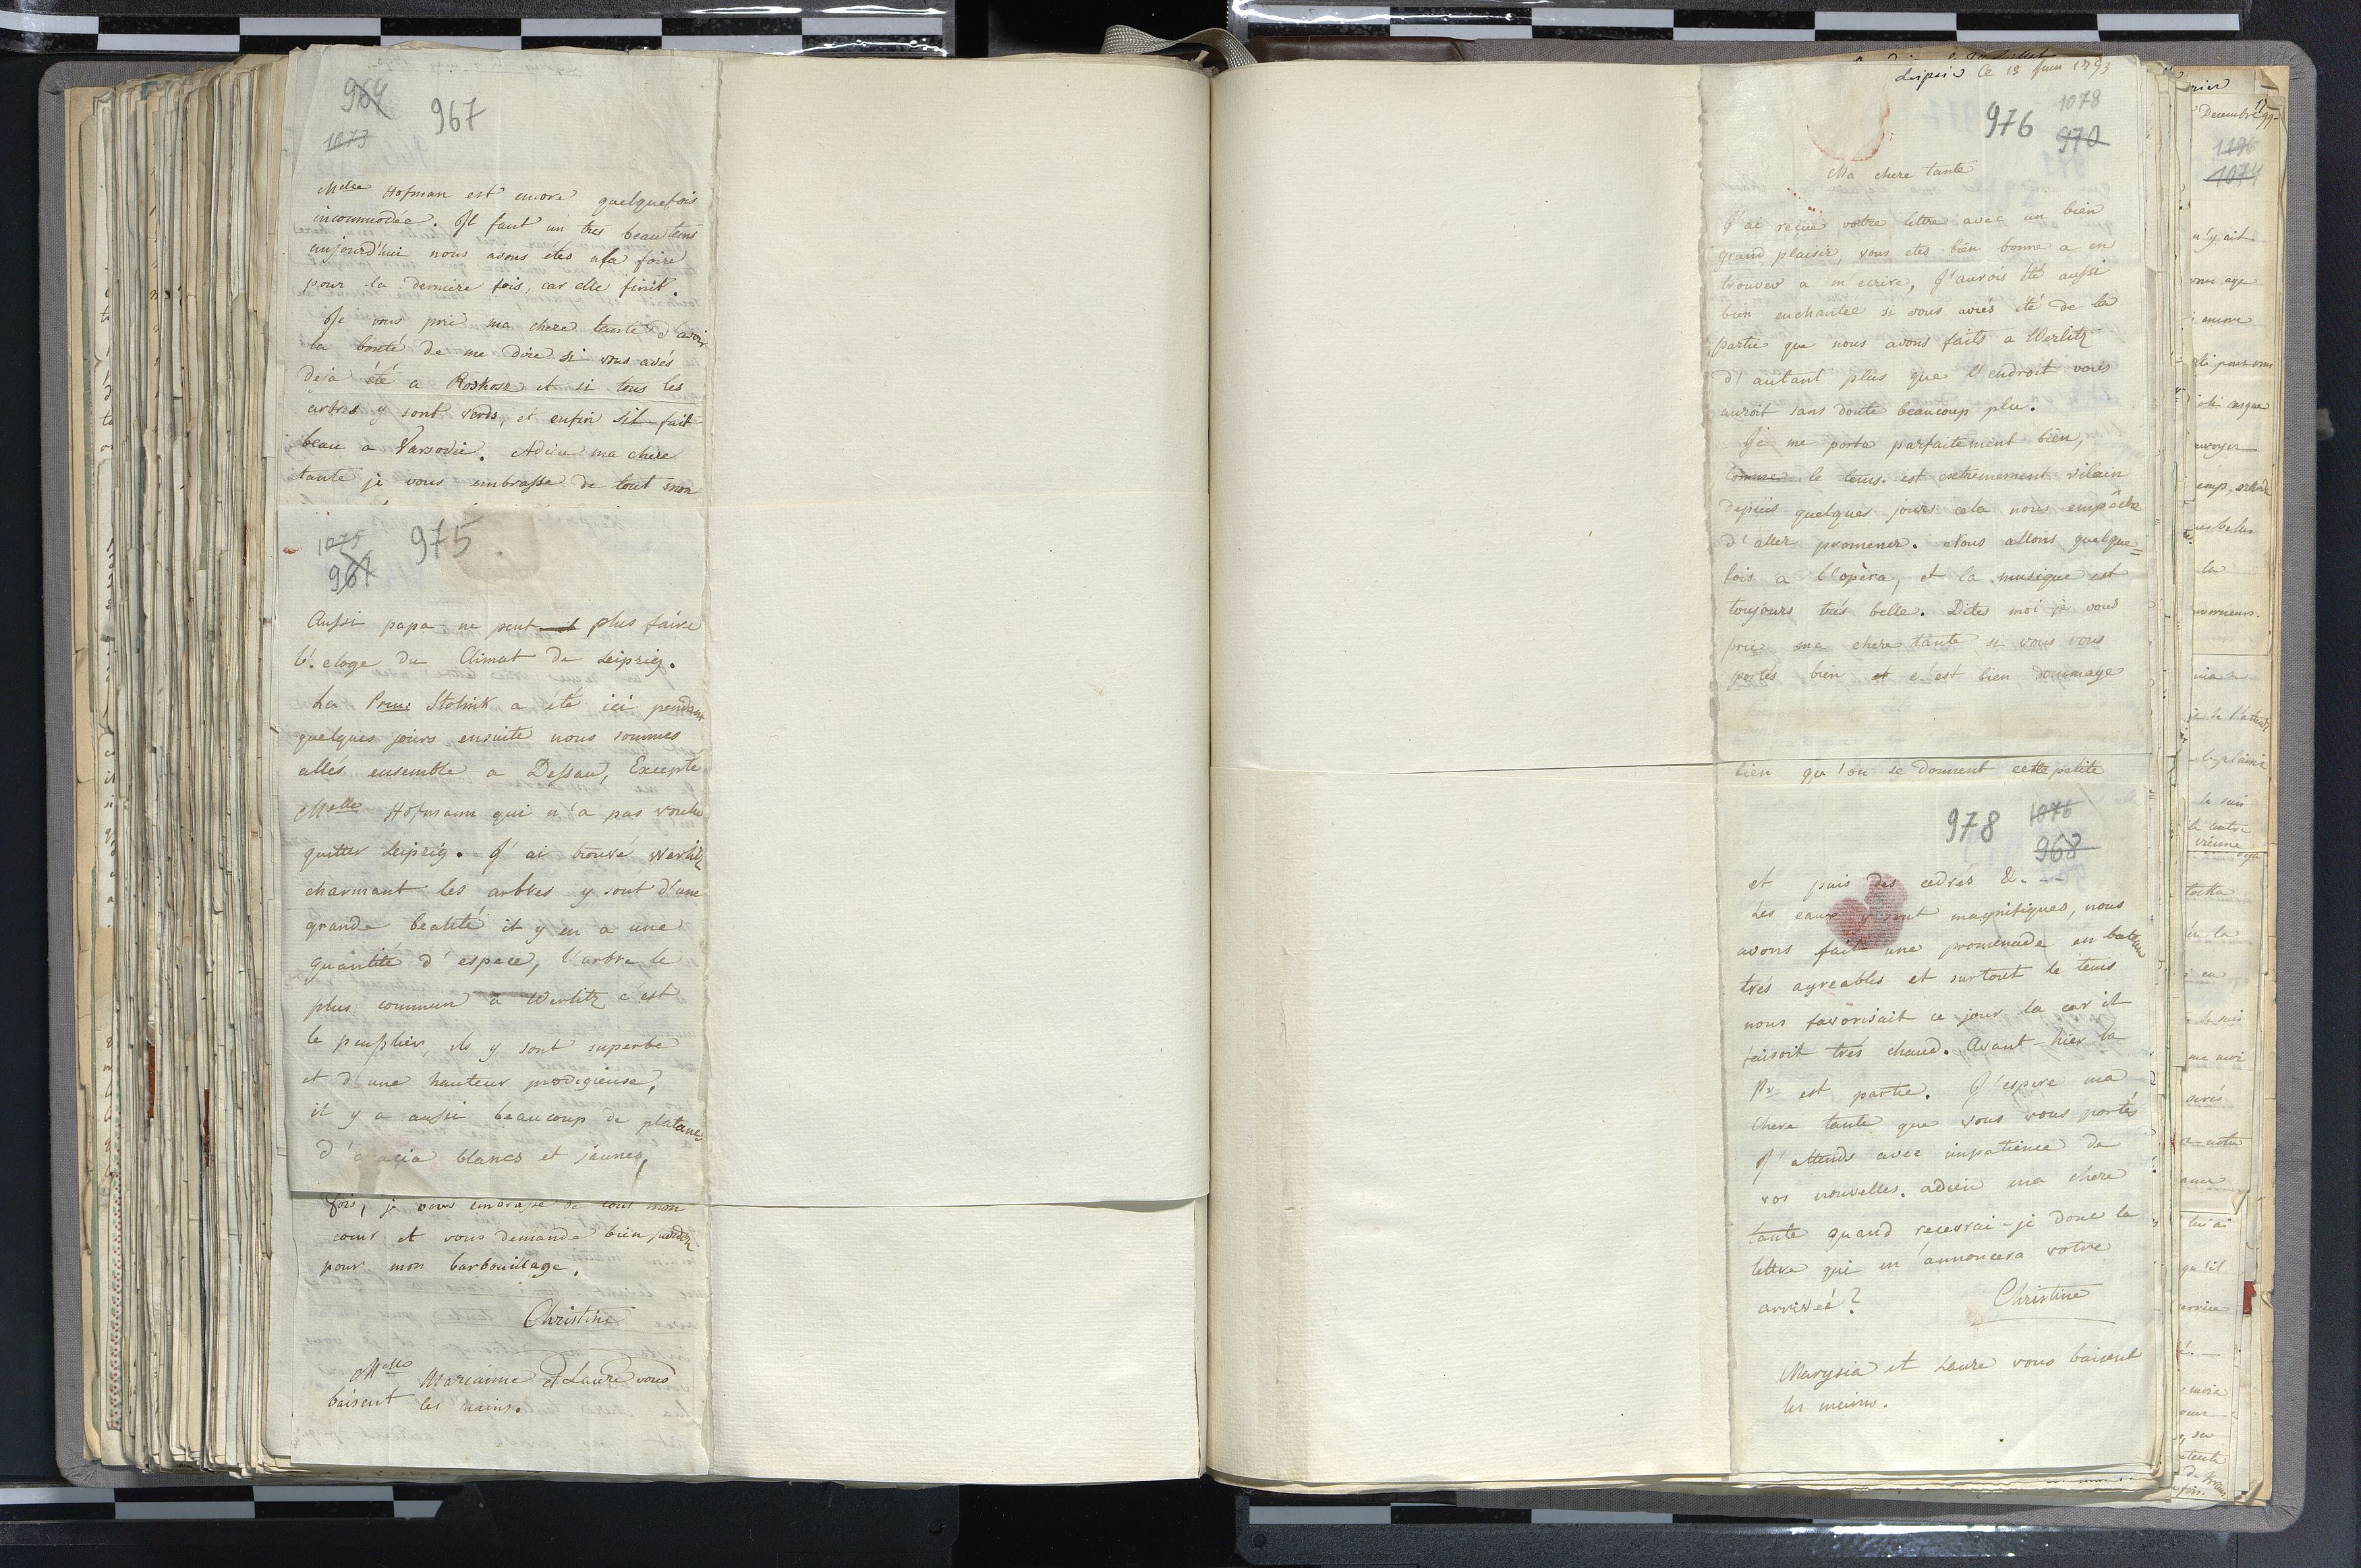 964
967
1073
Melle Hofman est encore quelquefois
incommodée. Il faut un tres beau tems
aujourd'hui nous avons étés a la foire
pour la derniere fois, car elle finit.
Je vous prie ma chere tante d'avoir
la bonté de me dire si vous avés
deja été a Roskosz et si tous les
arbres y sont verds, et enfin sil fait
beau a Varsovie. Adieu ma chere
tante je vous embrasse de tout mon
1075
975
967
Aussi papa ne peut il plus faire
l'eloge du Climat de Leipzig.
La Prin: Stolnik a été ici pendant
quelques jours ensuite nous sommes
allés ensemble a Dessau, Excepté
Melle Hofmann qui n'a pas voulu
quitter Leipzig. J'ai trouvé Werlitz
charmant les arbres y sont d'une
grande beauté il y en a une
quantité d'espece, l'arbre le
plus commun a Werlitz c'est
le peuplier, ils y sont superbe
et d'une hauteur prodigieuse,
il y a aussi beaucoup de platanes
d'acacia blancs et jaunes,
fois, je vous embrasse de tout mon
coeur et vous demande bien pardon
pour mon barbouillage.
Christine
Melle Marianne et Laure vous
baisent les mains.
Leipsic le 13 Juin 1793
1078
976
970
Ma chere tante
J'ai reçue votre lettre avec un bien
grand plaisir, vous etes bien bonne a en
trouver a m'ecrire, J'aurois été aussi
bien enchantée si vous aviés été de la
partie que nous avons faits a Werlitz
d'autant plus que l'endroit vous
auroit sans doute beaucoup plu.
Je me porte parfaitement bien,
comme le tems est extremement vilain
depuis quelques jours cela nous empêche
d'aller promener. Nous allons quelque=
fois a l'opèra, et la musique est
toujours trés belle. Dites moi je vous
prie ma chere tante si vous vous
portés bien et c'est bien dommage
bien qu'on se donnent cette petite
978
1076
968
et puis des cedres &. - -
Les eaux y sont magnifiques, nous
avons fait une promenade en bateau
trés agreables et surtout le tems
nous favorisait ce jour la car il
faisoit trés chaud. Avant-hier la
Pr est partie. J'espere ma
chere tante que vous vous portés
J'attends avec impatience de
vos nouvelles. adieu ma chere
tante quand recevrai-je donc la
lettre qui m'annoncera votre
arrivée?
Christine
Marysia et Laure vous baisent
les mains.
Decembre
1196
1074
n'y ait
encore
la